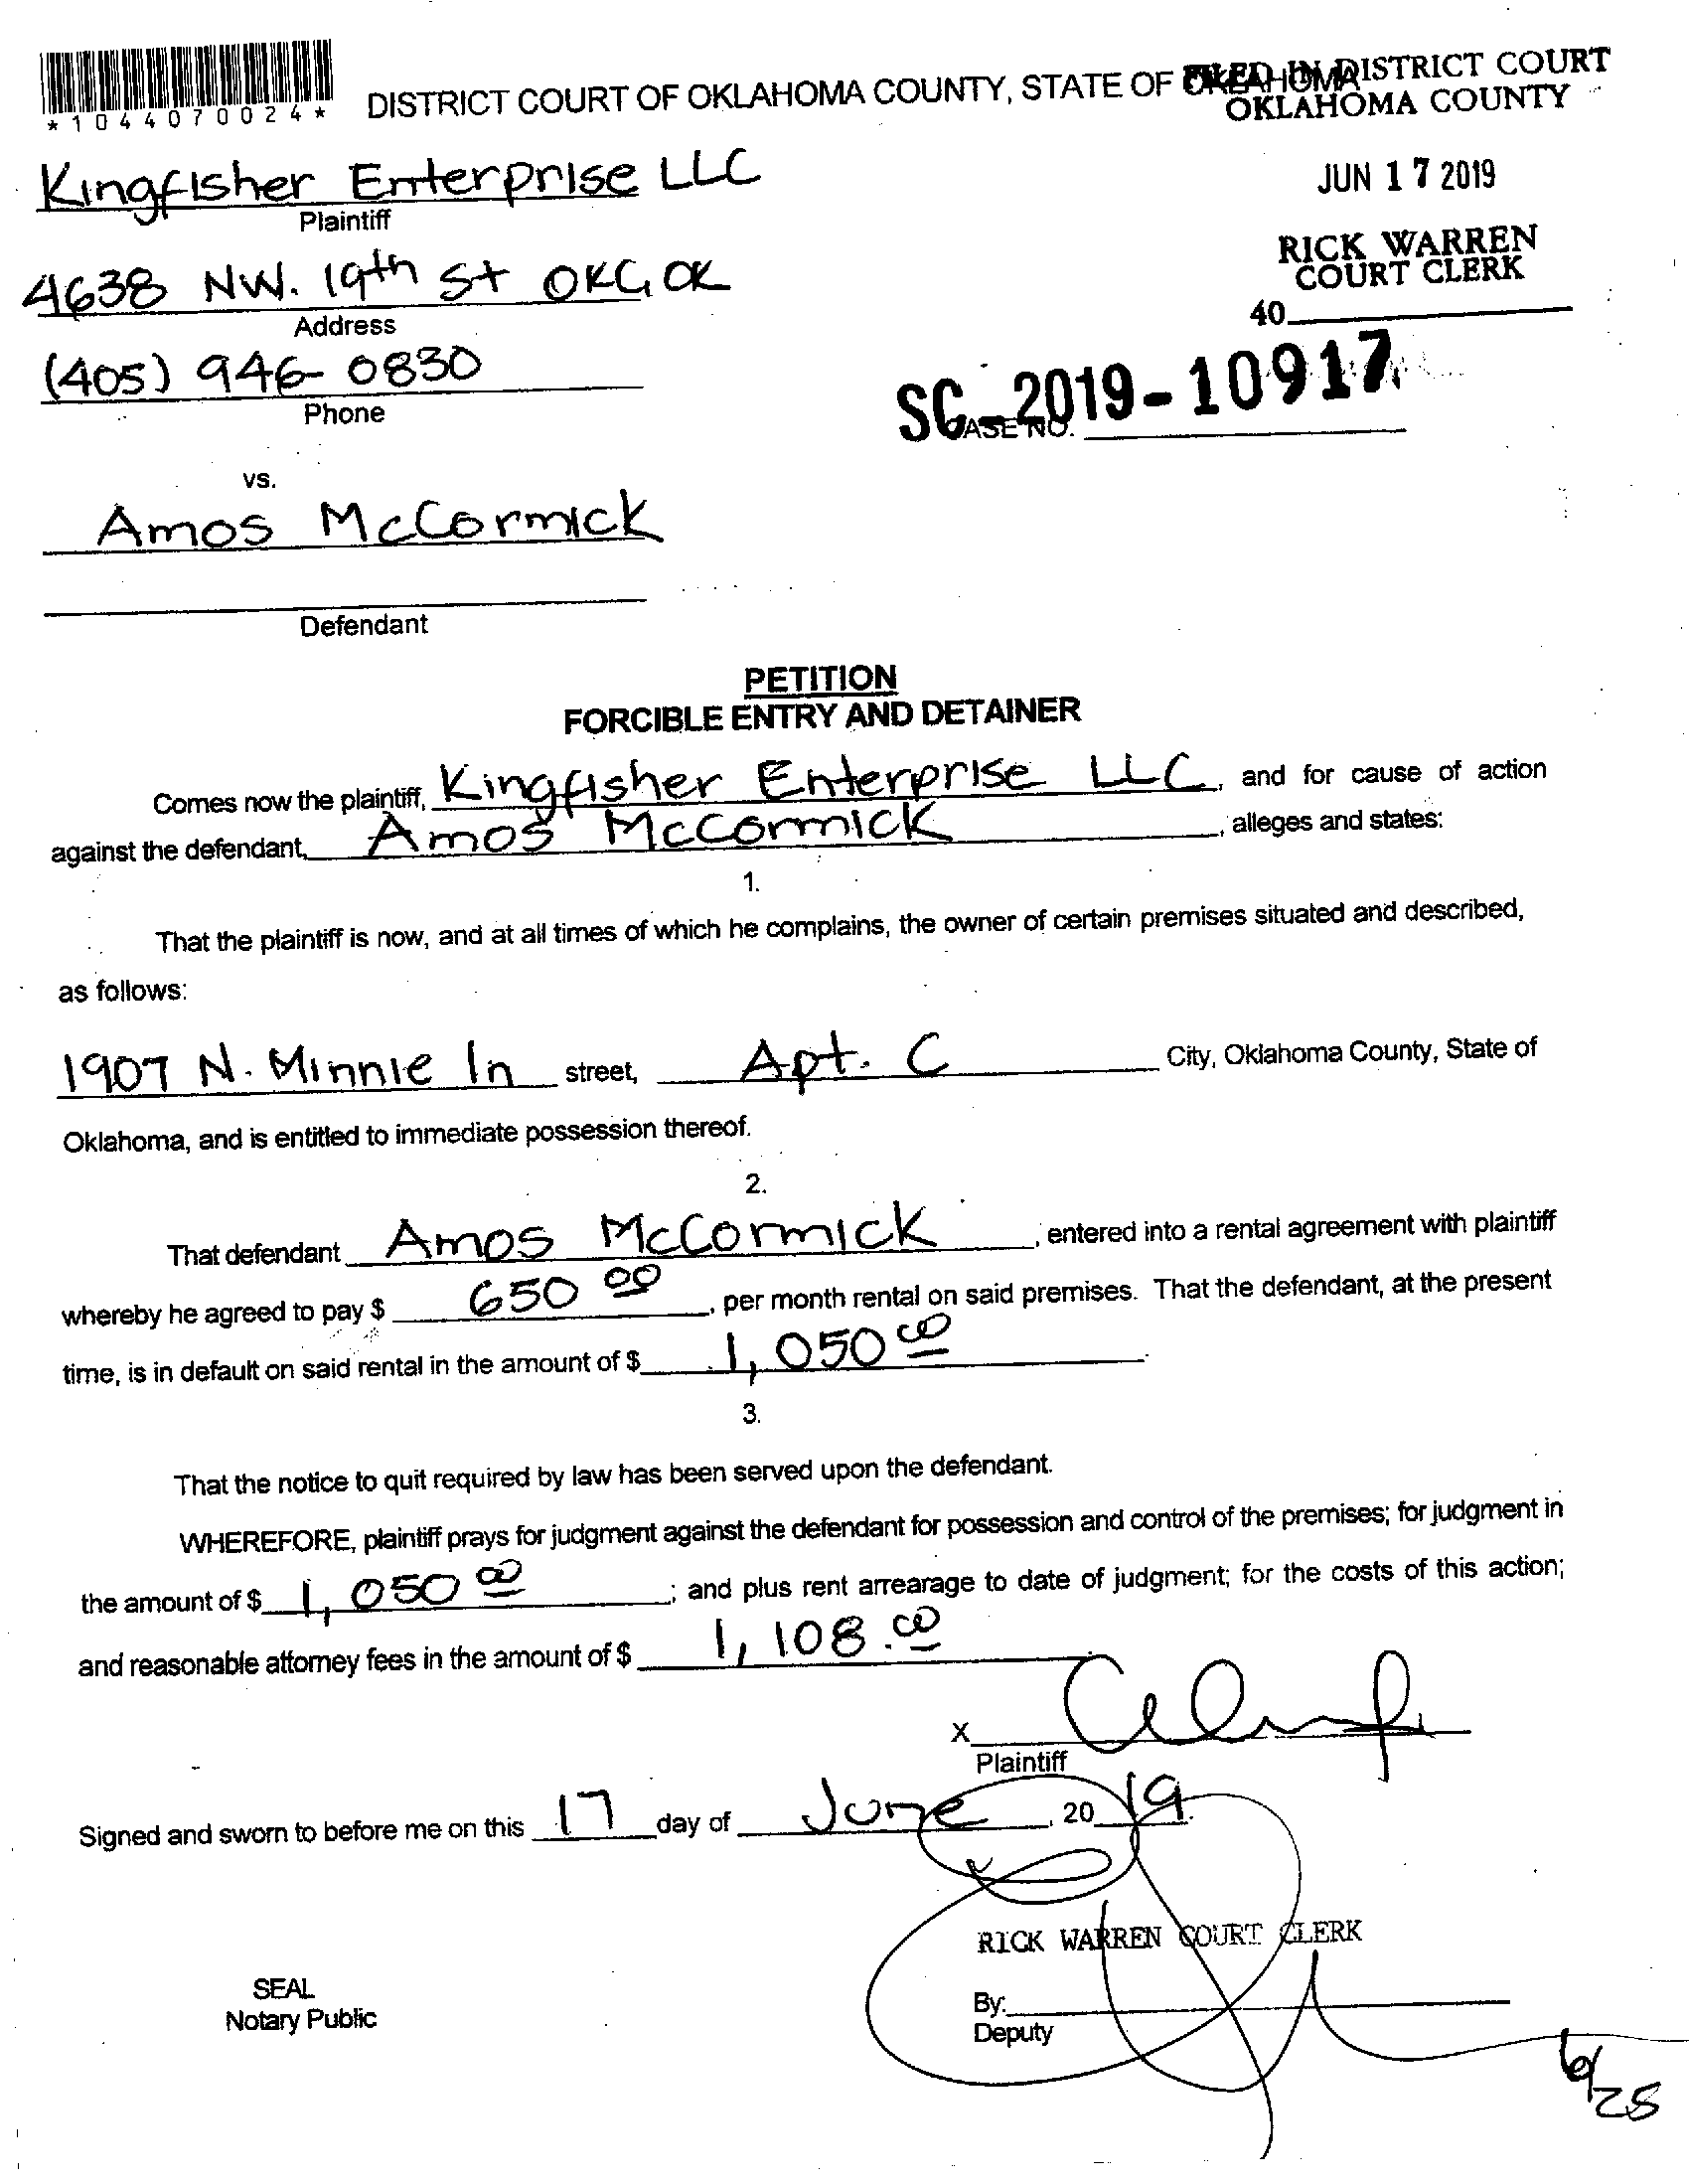 *1044070024*
DISTRICT COURT OF OKLAHOMA COUNTY, STATE OF OKLAHOMA
FILED IN DISTRICT COURT
OKLAHOMA COUNTY
JUN 17 2019
RICK WARREN
COURT CLERK
40
Kingfisher Enterprise LLC
Plaintiff
4638 NW. 19th St OKC, OK
Address
(405) 946-0830
Phone
SC-2019-10917
CASE NO.
vs.
Amos McCormick
Defendant
PETITION
FORCIBLE ENTRY AND DETAINER
Comes now the plaintiff, Kingfisher Enterprise LLC, and for cause of action
against the defendant, Amos McCormick, alleges and states:
1.
That the plaintiff is now, and at all times of which he complains, the owner of certain premises situated and described,
as follows:
1907 N. Minnie ln street, Apt. C City, Oklahoma County, State of
Oklahoma, and is entitled to immediate possession thereof.
2.
That defendant Amos McCormick, entered into a rental agreement with plaintiff
whereby he agreed to pay $ 650 00, per month rental on said premises. That the defendant, at the present
time, is in default on said rental in the amount of $ 1,050 00.
3.
That the notice to quit required by law has been served upon the defendant.
WHEREFORE, plaintiff prays for judgment against the defendant for possession and control of the premises; for judgment in
the amount of $ 1,050 00; and plus rent arrearage to date of judgment; for the costs of this action;
and reasonable attorney fees in the amount of $ 1,108.00
X
Plaintiff
Signed and sworn to before me on this 17 day of June, 20 19.
RICK WARREN COURT CLERK
SEAL
Notary Public
By:
Deputy
6/25